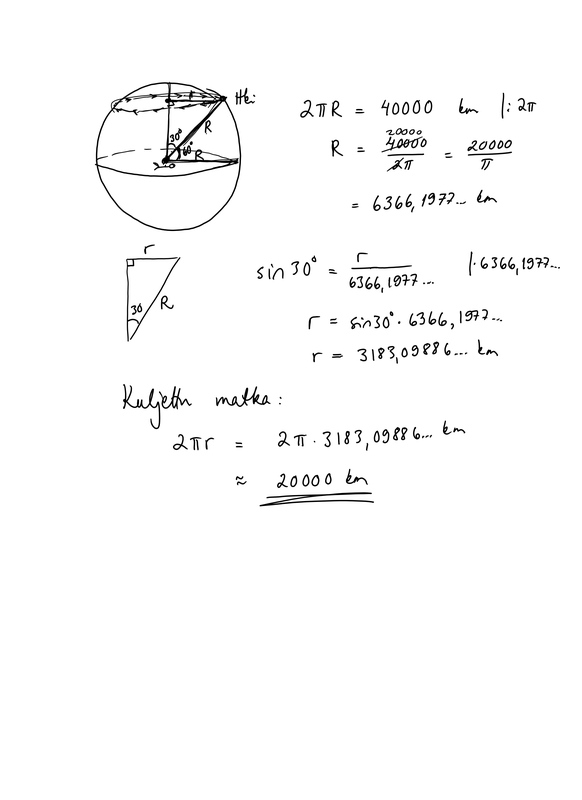 Hki
30°
R
60°
R
r
2πR = 40000 km |: 2π
R = 40000/2π = 20000/π
20000
= 6366,1977... km
r
30
R
sin 30° = r/6366,1977... |· 6366,1977...
r = sin30° · 6366,1977...
r = 3183,09886... km
Kuljettu matka:
2πr = 2π · 3183,09886... km
≈ 20000 km